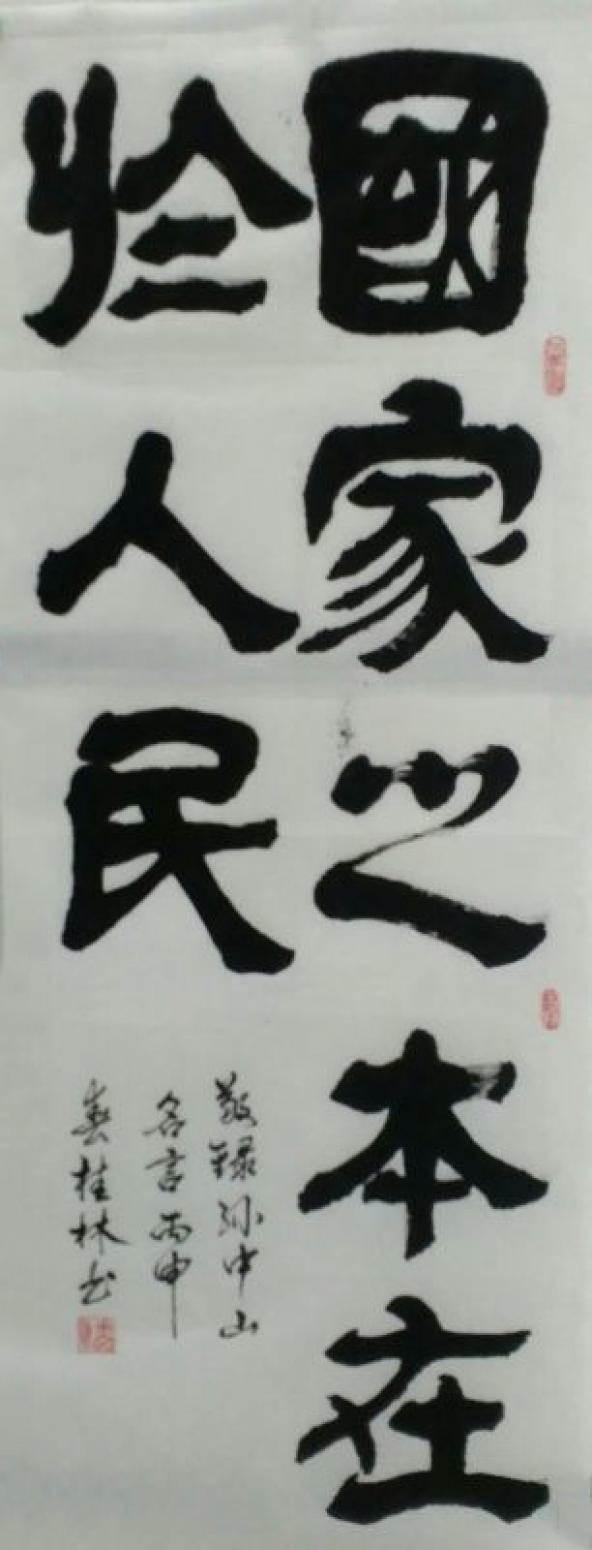 國家之本在
於人民
敬録孙中山
名言丙申
春桂林书